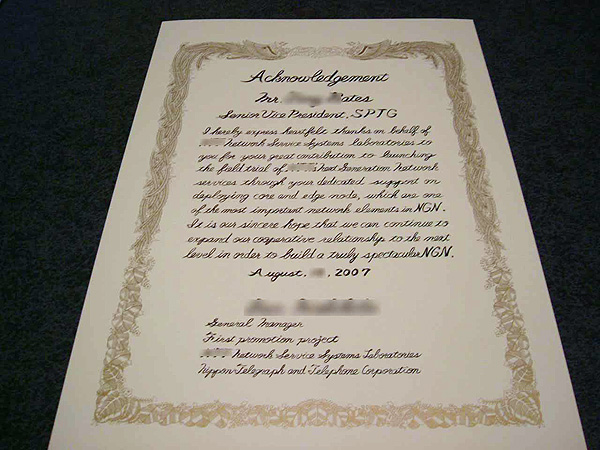 Acknowledgement
Mr. Bates
Senior Vice President, SPTG
I hereby express heartfelt thanks on behalf of
Network Service Systems laboratories to
you for your great contribution to launching
the field trial of Next Generation Network
services through your dedicated support on
deploying core and edge node, which are one
of the most important network elements in NGN.
It is our sincere hope that we can continue to
expand our cooperative relationship to the next
level in order to build a truly spectacular NGN.
August, , 2007
General Manager
First promotion project
Network Service Systems Laboratories
Nippon Telegraph and Telephone Corporation